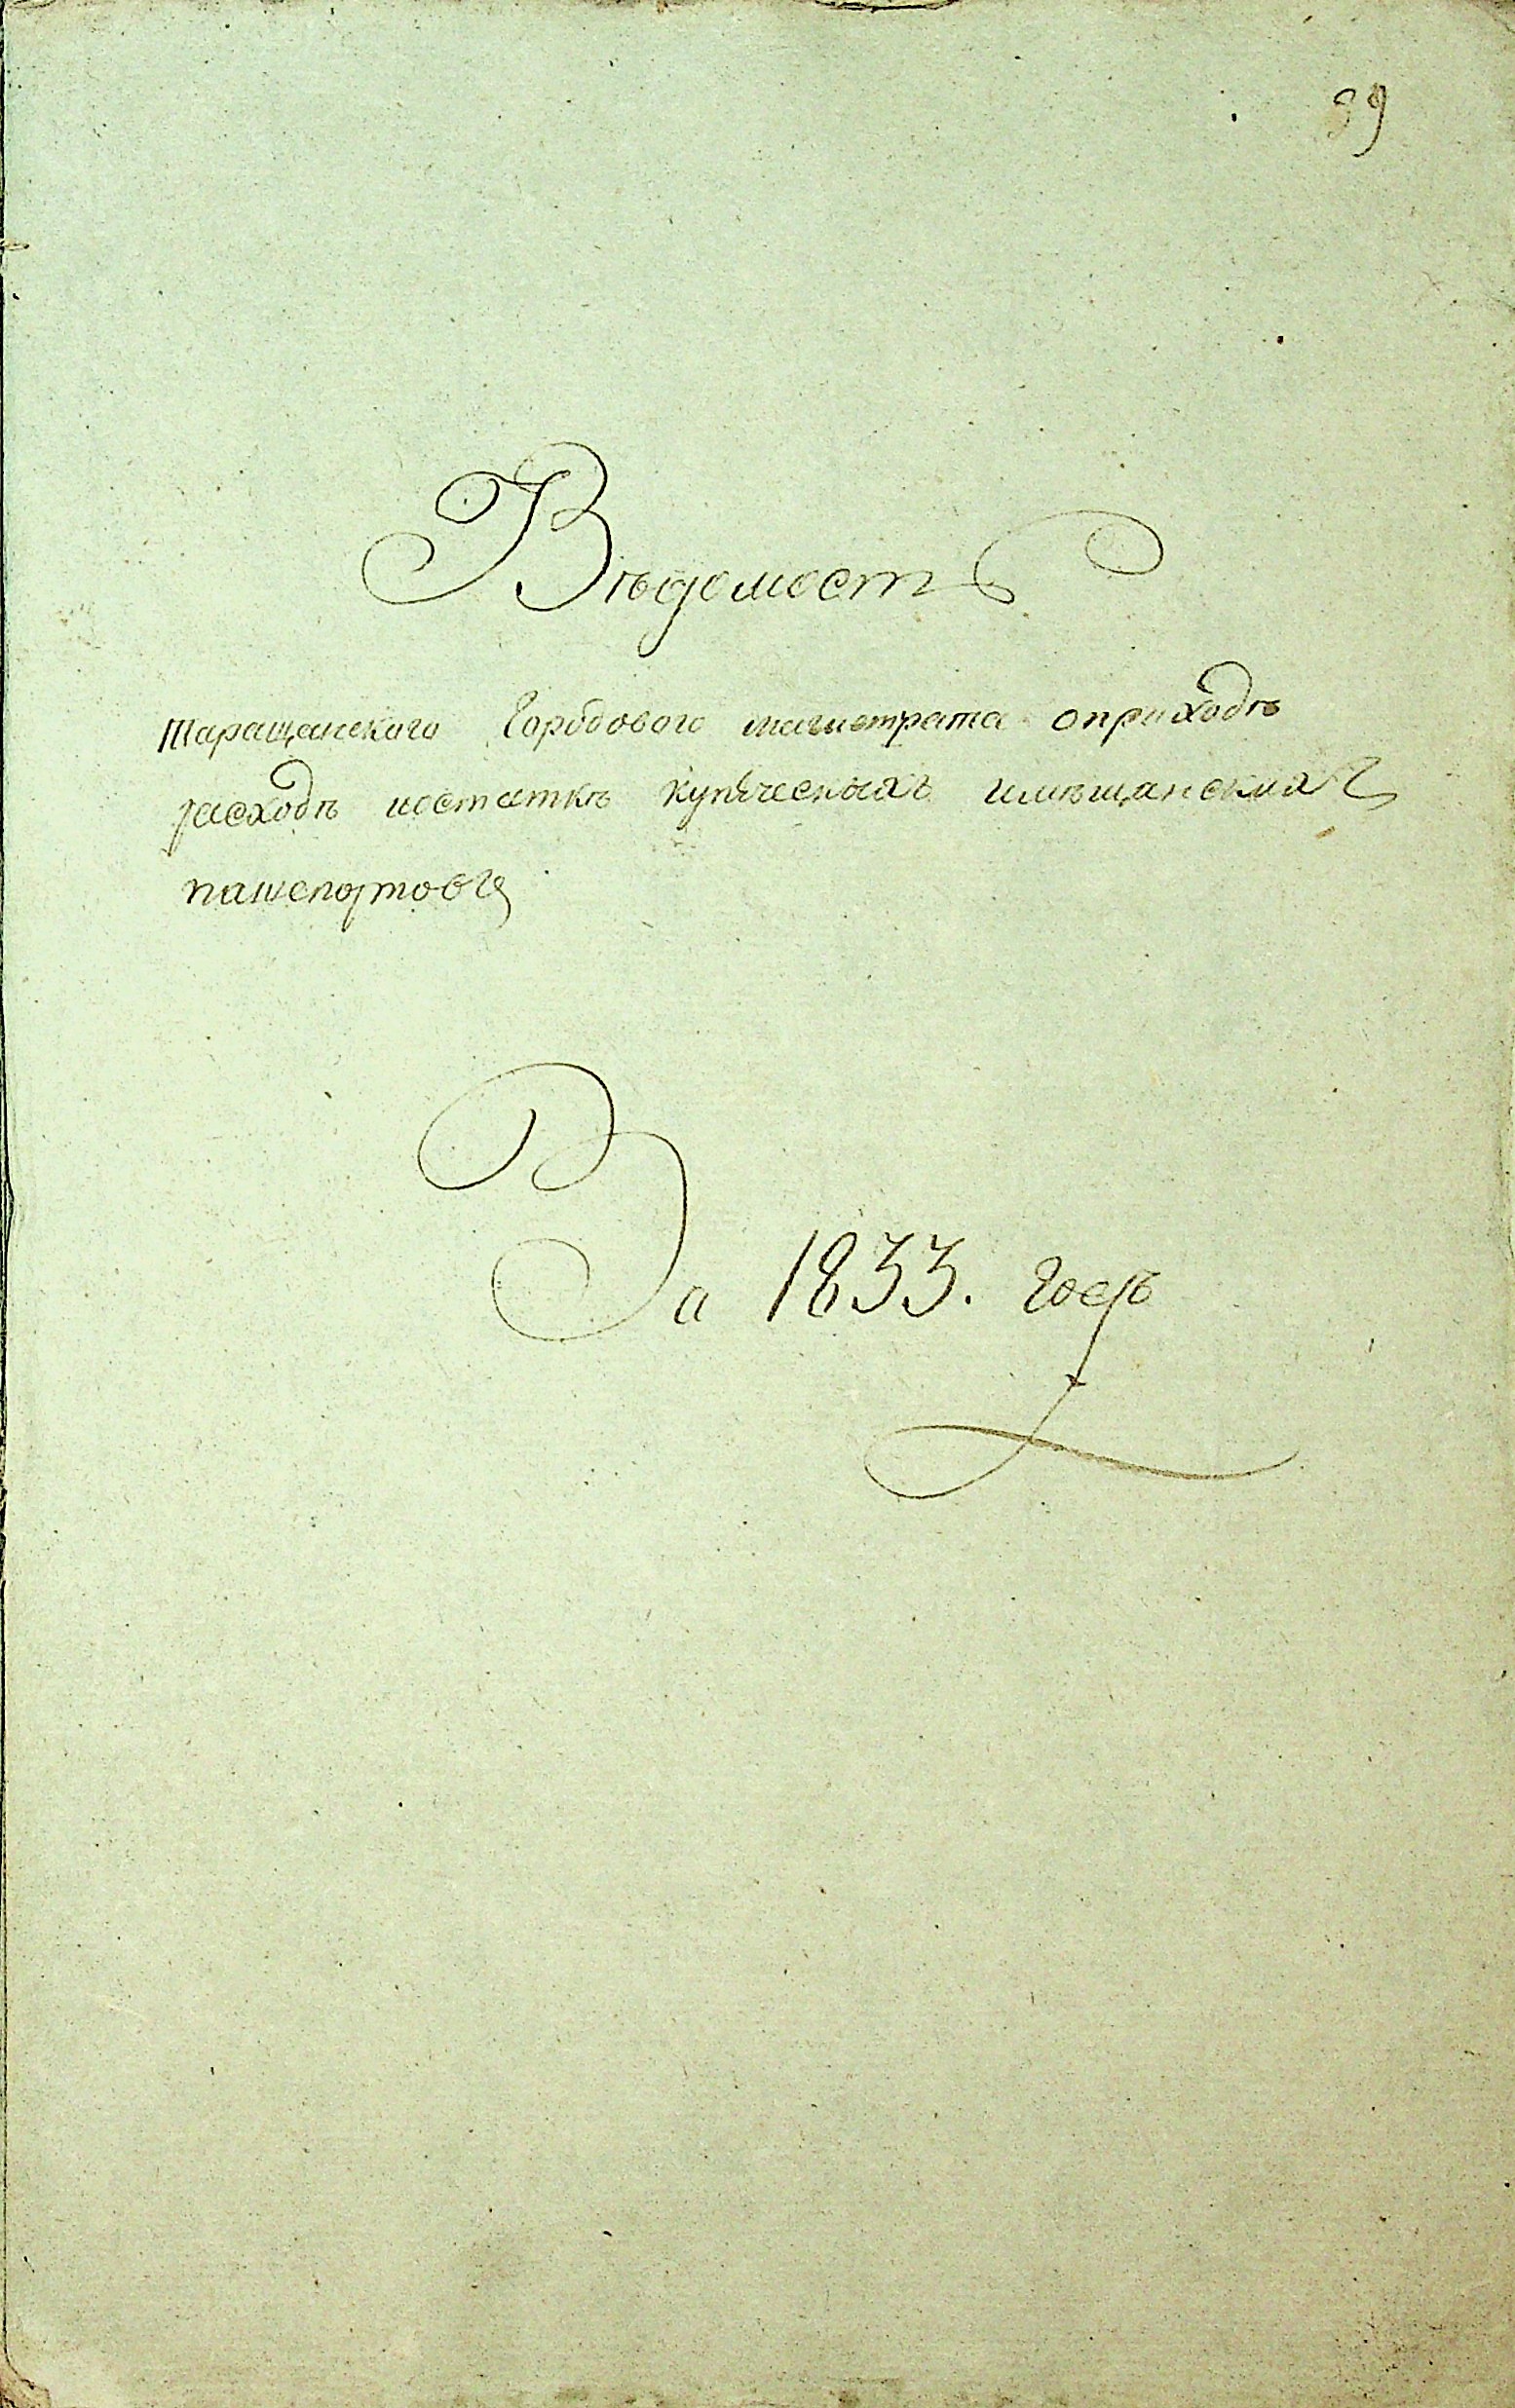 99
Вѣдомость
Таращанского Городового магистрата оприходѣ
расходѣ иостаткѣ купѣческыхъ имѣщанскихъ
пашспортовъ
За 1833. годъ